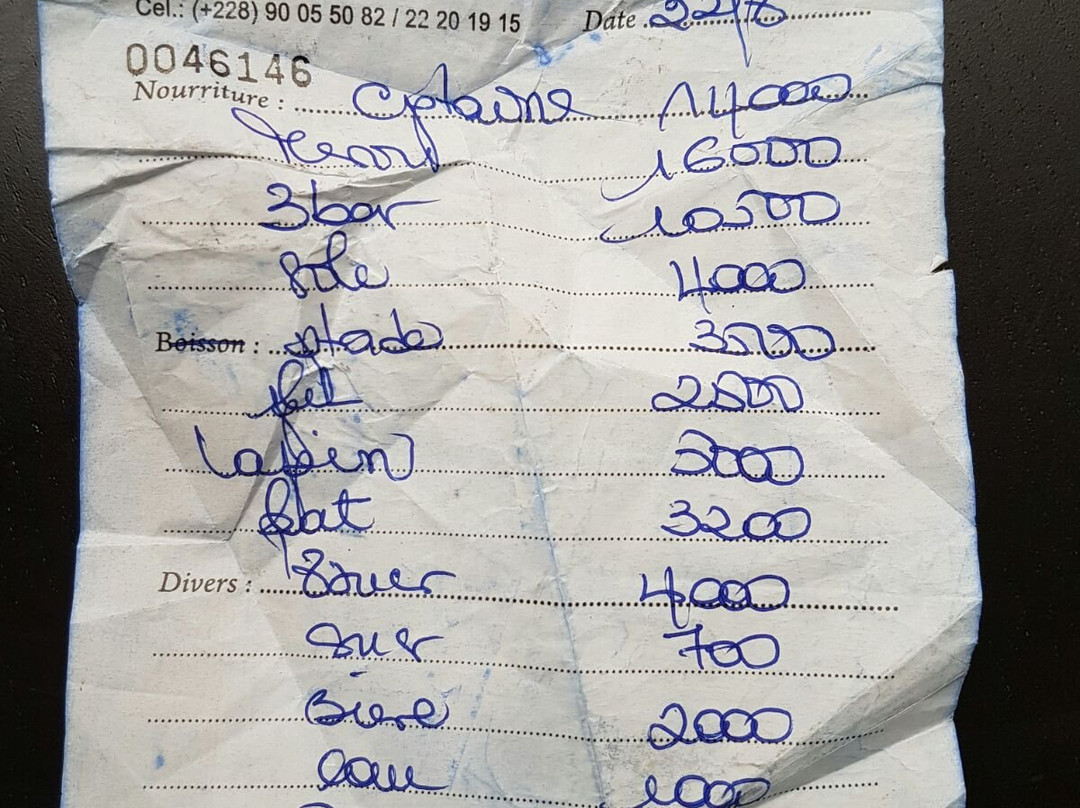 Cel.: (+228) 90 05 50 82 / 22 20 19 15 Date 22/8
0046146
Nourriture : Cptaine 14000
16000
3 bar 10500
Sole 4000
Boisson : 3500
2500
Lapin 3000
plat 3200
Divers : 4000
700
Biere 2000
eau 1000